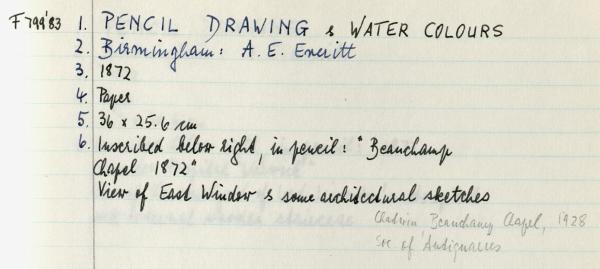 F 799'83 1. PENCIL DRAWING & WATER COLOURS
2. Birmingham: A. E. Everitt
3. 1872
4. Paper
5. 36 x 25.6 cm
6. Inscribed below right, in pencil: "Beauchamp
Chapel 1872"
View of East Window & some architectural sketches
Chatwin 'Beauchamp Chapel, 1928
Soc of Antiquaries